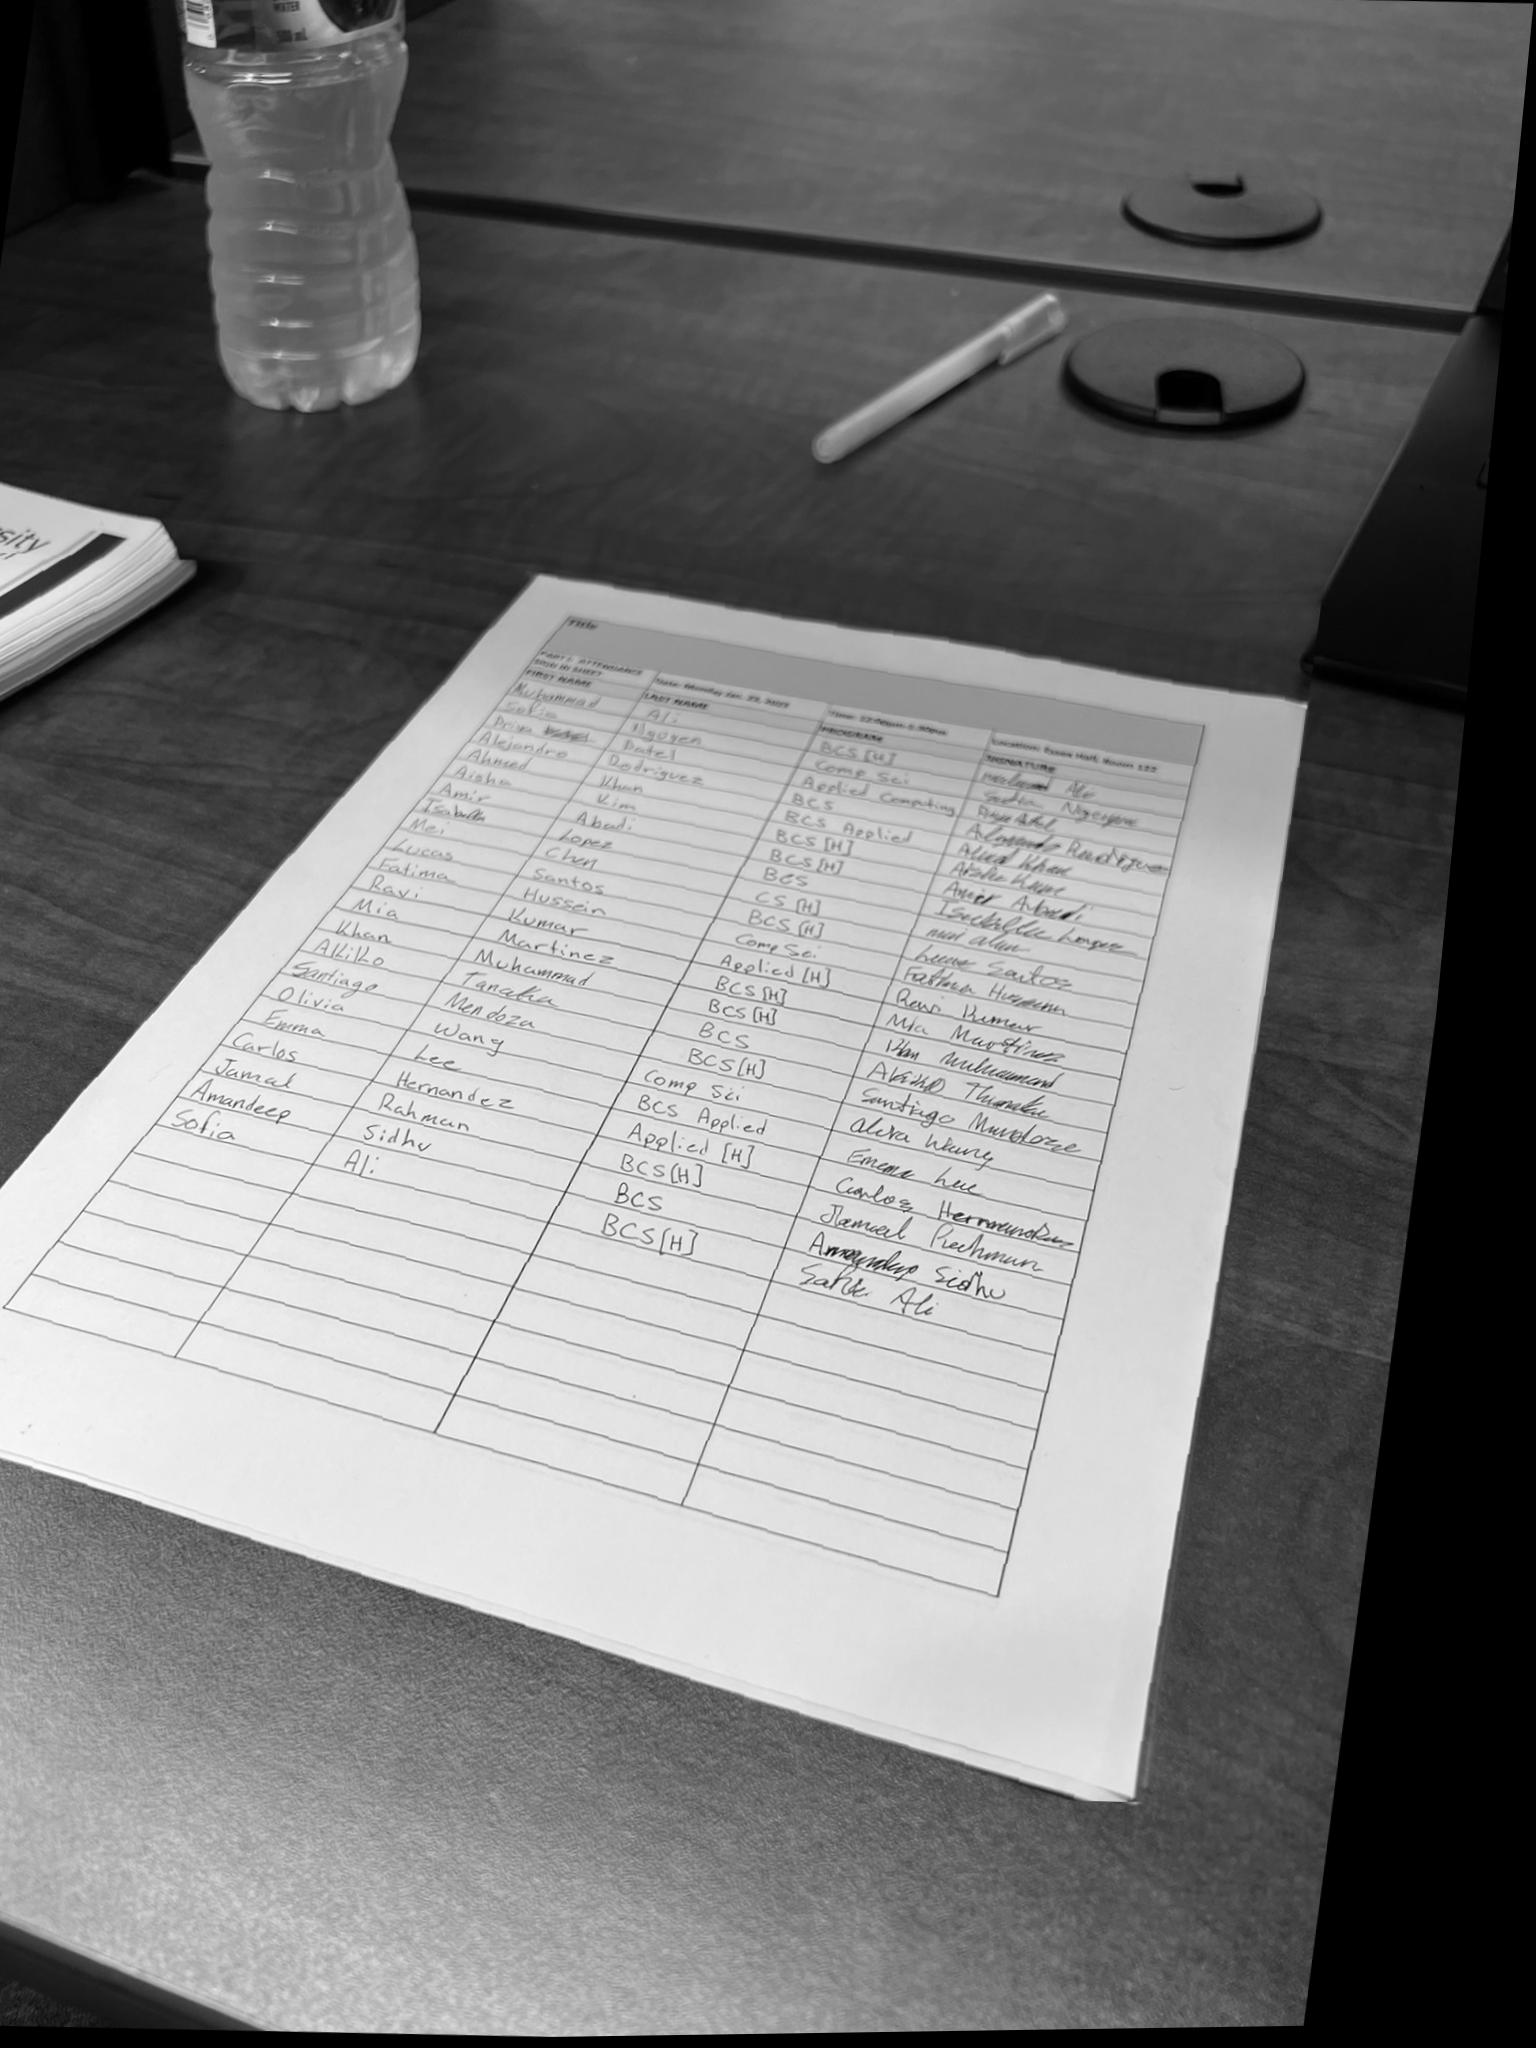 WATER
500 mL
sity
Title
PART I: ATTENDANCE SIGN IN SHEET Date: Monday Jan. 23, 2023 Time: 12:00pm-1:30pm Location: Essex Hall, Room 122
FIRST NAME LAST NAME PROGRAM SIGNATURE
Muhammad Ali BCS [H] Ali
Sofia Nguyen Comp Sci Sofia Nguyen
Priya Patel Applied Computing Priya Patel
Alejandro Rodriguez BCS Alejandro Rodriguez
Ahmed Khan BCS Applied Ahmed Khan
Aisha Kim BCS [H] Aisha Kim
Amir Abadi BCS [H] Amir Abadi
Isabella Lopez BCS Isabella Lopez
Mei Chen CS [H] mei chen
Lucas Santos BCS [H] Lucas Santos
Fatima Hussein Comp Sci Fatima Hussein
Ravi Kumar Applied [H] Ravi Kumar
Mia Martinez BCS [H] Mia Martinez
Khan Muhammad BCS [H] Khan Muhammad
Akiko Tanaka BCS Akiko Tanaka
Santiago Mendoza BCS [H] Santiago Mendoza
Olivia Wang Comp Sci Olivia Wang
Emma Lee BCS Applied Emma Lee
Carlos Hernandez Applied [H] Carlos Hernandez
Jamal Rahman BCS [H] Jamal Rahman
Amandeep Sidhu BCS Amandeep Sidhu
Sofia Ali BCS [H] Sofia Ali